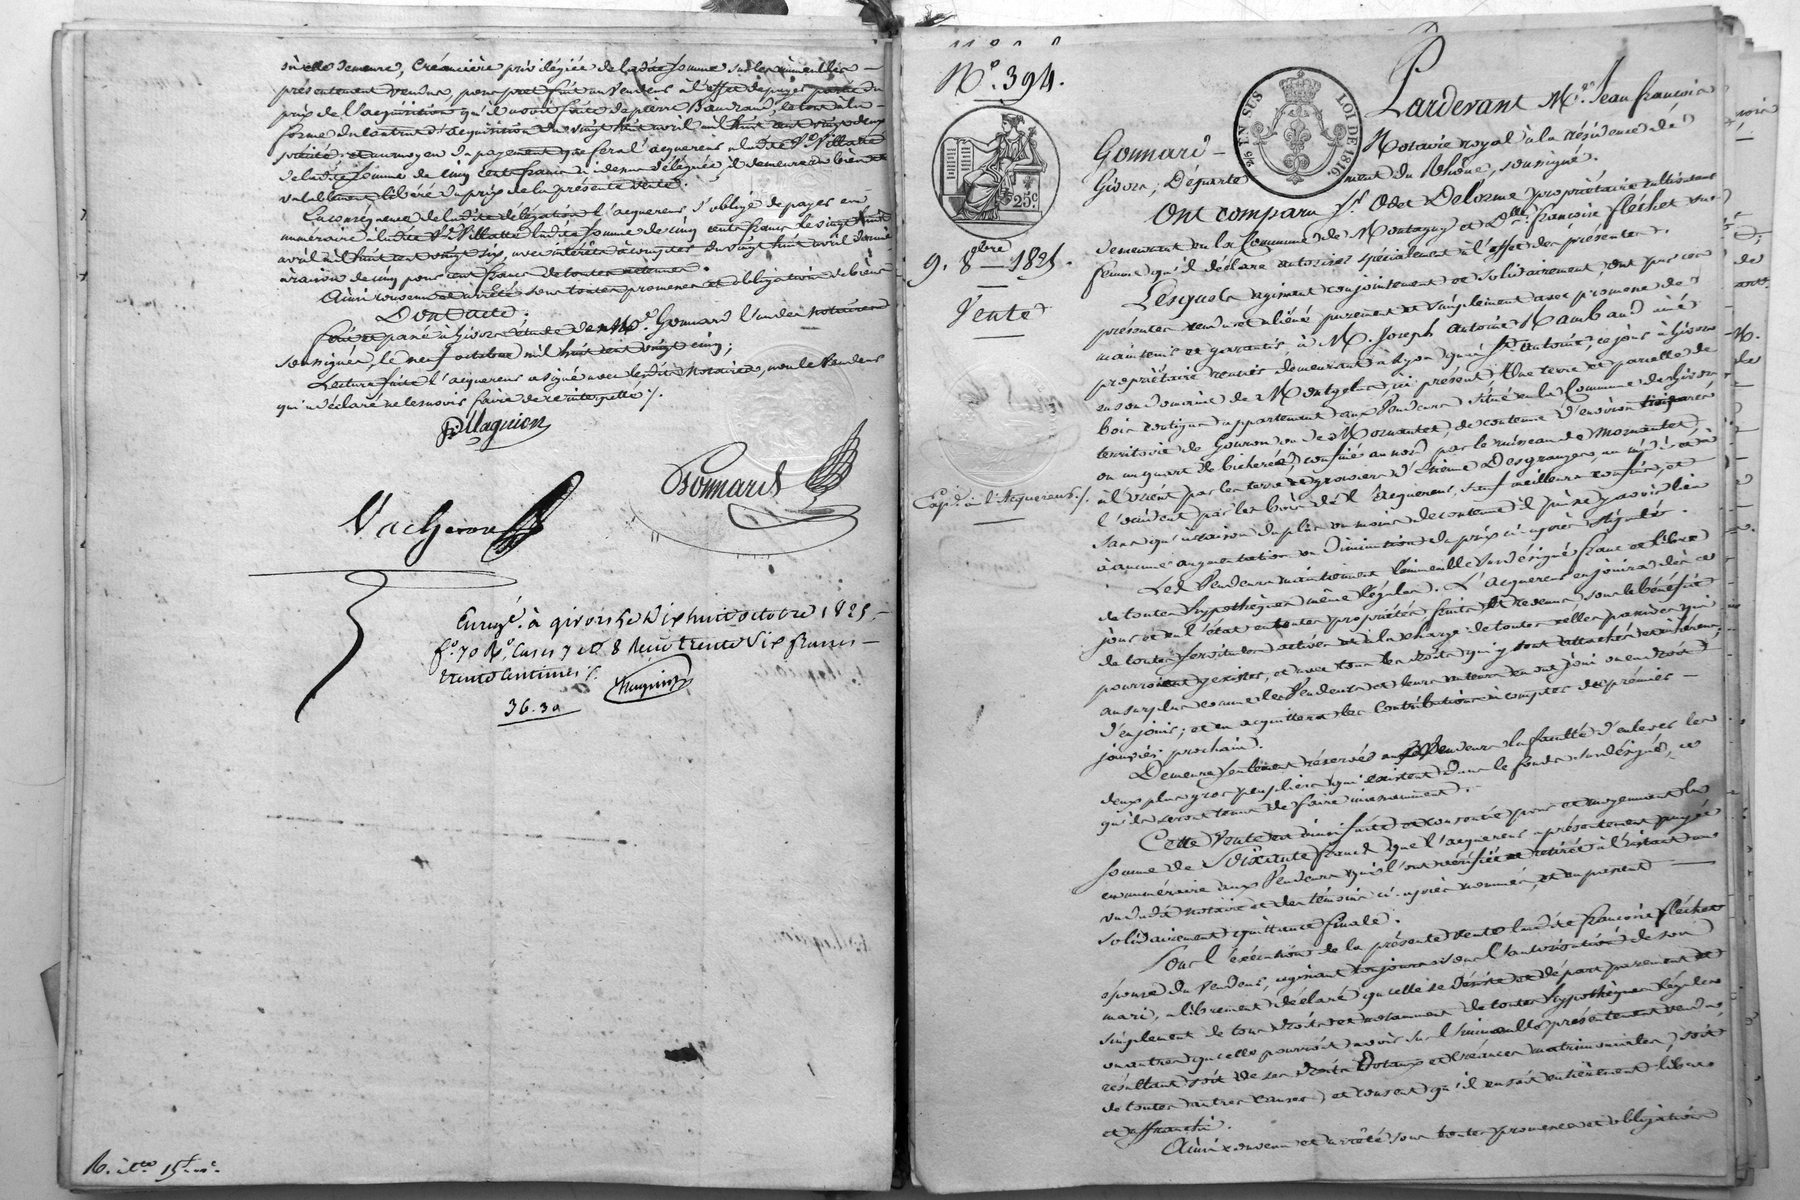 où elle demeure, Créancière privilégiée de ladite somme sur les immeubles
présentement vendus, pour prêt fait au vendeur à l'effet de payer partie du
prix de l'acquisition qu'il avoit faite de pierre
forme du Contrat d'acquisition du vingt huit avril mil huit cent vingt deux
précité; et au moyen du payement que fera l'acquereur à ladite Ve Villatte
de ladite somme de cinq cents francs ci dessus déléguée, il demeurera bien et
valablement libéré du prix de la présente vente.
En conséquence de ladite délégation l'acquereur s'oblige de payer en
numéraire à ladite Ve Villatte ladite somme de cinq cents francs le vingt huit
avril mil huit cent vingt six, avec intérêts à compter du vingt huit avril dernier
à raison de cinq pour cent francs de toutes retenues.
Ainsi convenu et arrêté sous toutes promesses et obligation de biens
Dont acte.
Fait et passé à Givors étude de Me Gonnard l'un des notaires
soussignés, le neuf octobre mil huit cent vingt cinq;
Lecture faite l'acquereur a signé avec lesdits Notaires, non le Vendeur
qui a déclaré ne le savoir faire de ce interpellé /.
Vacheron
Gonnard
Enregé. à givors le dix huit octobre 1825,
fo. 70 Ro. Cases 7 et 8 Reçu trente Six francs
trente Centimes /.
36.30
No. 394.
EN SUS
LOI DE 1816.
25c
9. 8bre 1825.
Vente
Expd. à l'Acquereur /.
Pardevant Me. Jean françois
Gonnard Notaire royal à la résidence de
Givors, Département du Rhône, soussigné.
Ont comparu Sr. Odet Delorme propriétaire cultivateur
demeurant en la Commune de Montagny et Dlle. françoise fléchet sa
femme qu'il déclare autoriser spécialement à l'effet des présentes.
Lesquels agissant conjointement et solidairement ont par ces
présentes vendu et aliéné purement et simplement avec promesse de
maintenir et garantir, à M. Joseph Antoine Rambaud ainé
propriétaire rentier demeurant à Lyon quai St. Antoine, ce jour à Givors
en son domaine de Montgelas, ici présent Une terre et parcelle de
bois contigue appartenant aux Vendeurs située en la Commune de Givors
territoire de Gourou ou de Mornantet, de contenue d'environ trois ares
ou un quart de bicherée, confiné au nord par le ruisseau de Mornantet
à l'orient par les terre et gravier d'Etienne Desgranges, au midi et à
l'occident par les bois de l'Acquereur, sauf meilleurs confins; et
sans qu'à raison du plus ou moins de contenue il puisse y avoir lieu
à aucune augmentation ou diminution du prix ci après stipulé.
Les Vendeurs maintiennent l'immeuble susdésigné franc et libre
de toutes hypothèques même légales. L'acquereur en jouira dès ce
jour et en l'état en toutes propriétés fruits et revenus sous le bénéfice
de toutes servitudes actives et à la charge de toutes celles passives qui
pourroient y exister, et avec tous les droits qui y sont attachés et inhérens,
au surplus comme les Vendeurs et leurs auteurs en ont joui ou eu droit
d'en jouir; et en acquittera les Contributions à compter du premier
janvier prochain.
Demeure seulement réservée aux Vendeurs la faculté d'enlever les
deux plus gros peupliers qui existent dans le fonds susdésigné, ce
qu'ils seront tenus de faire incessamment.
Cette Vente est ainsi faite et consentie pour et moyennant la
somme de Soixante francs que l'acquereur a présentement payée
en numéraire aux Vendeurs qui l'ont vérifiée et retirée à l'instant au
vu dudit notaire et des témoins ci après nommés, et en passent
solidairement quittance finale.
Sous l'exécution de la présente vente ladite françoise fléchet
épouse du vendeur, agissant toujours sous l'autorisation de son
mari, a librement déclaré qu'elle se désiste et départ purement et
simplement de tous droits et notamment de toutes hypothèques légales
ou autres qu'elle pourroit avoir sur l'immeuble présentement vendu
résultant soit de ses droits Dotaux et créances matrimoniales, soit
de toutes autres causes, et consent qu'il en soit entièrement libéré
et affranchi.
Ainsi convenu et arrêté sous toutes promesses et obligations